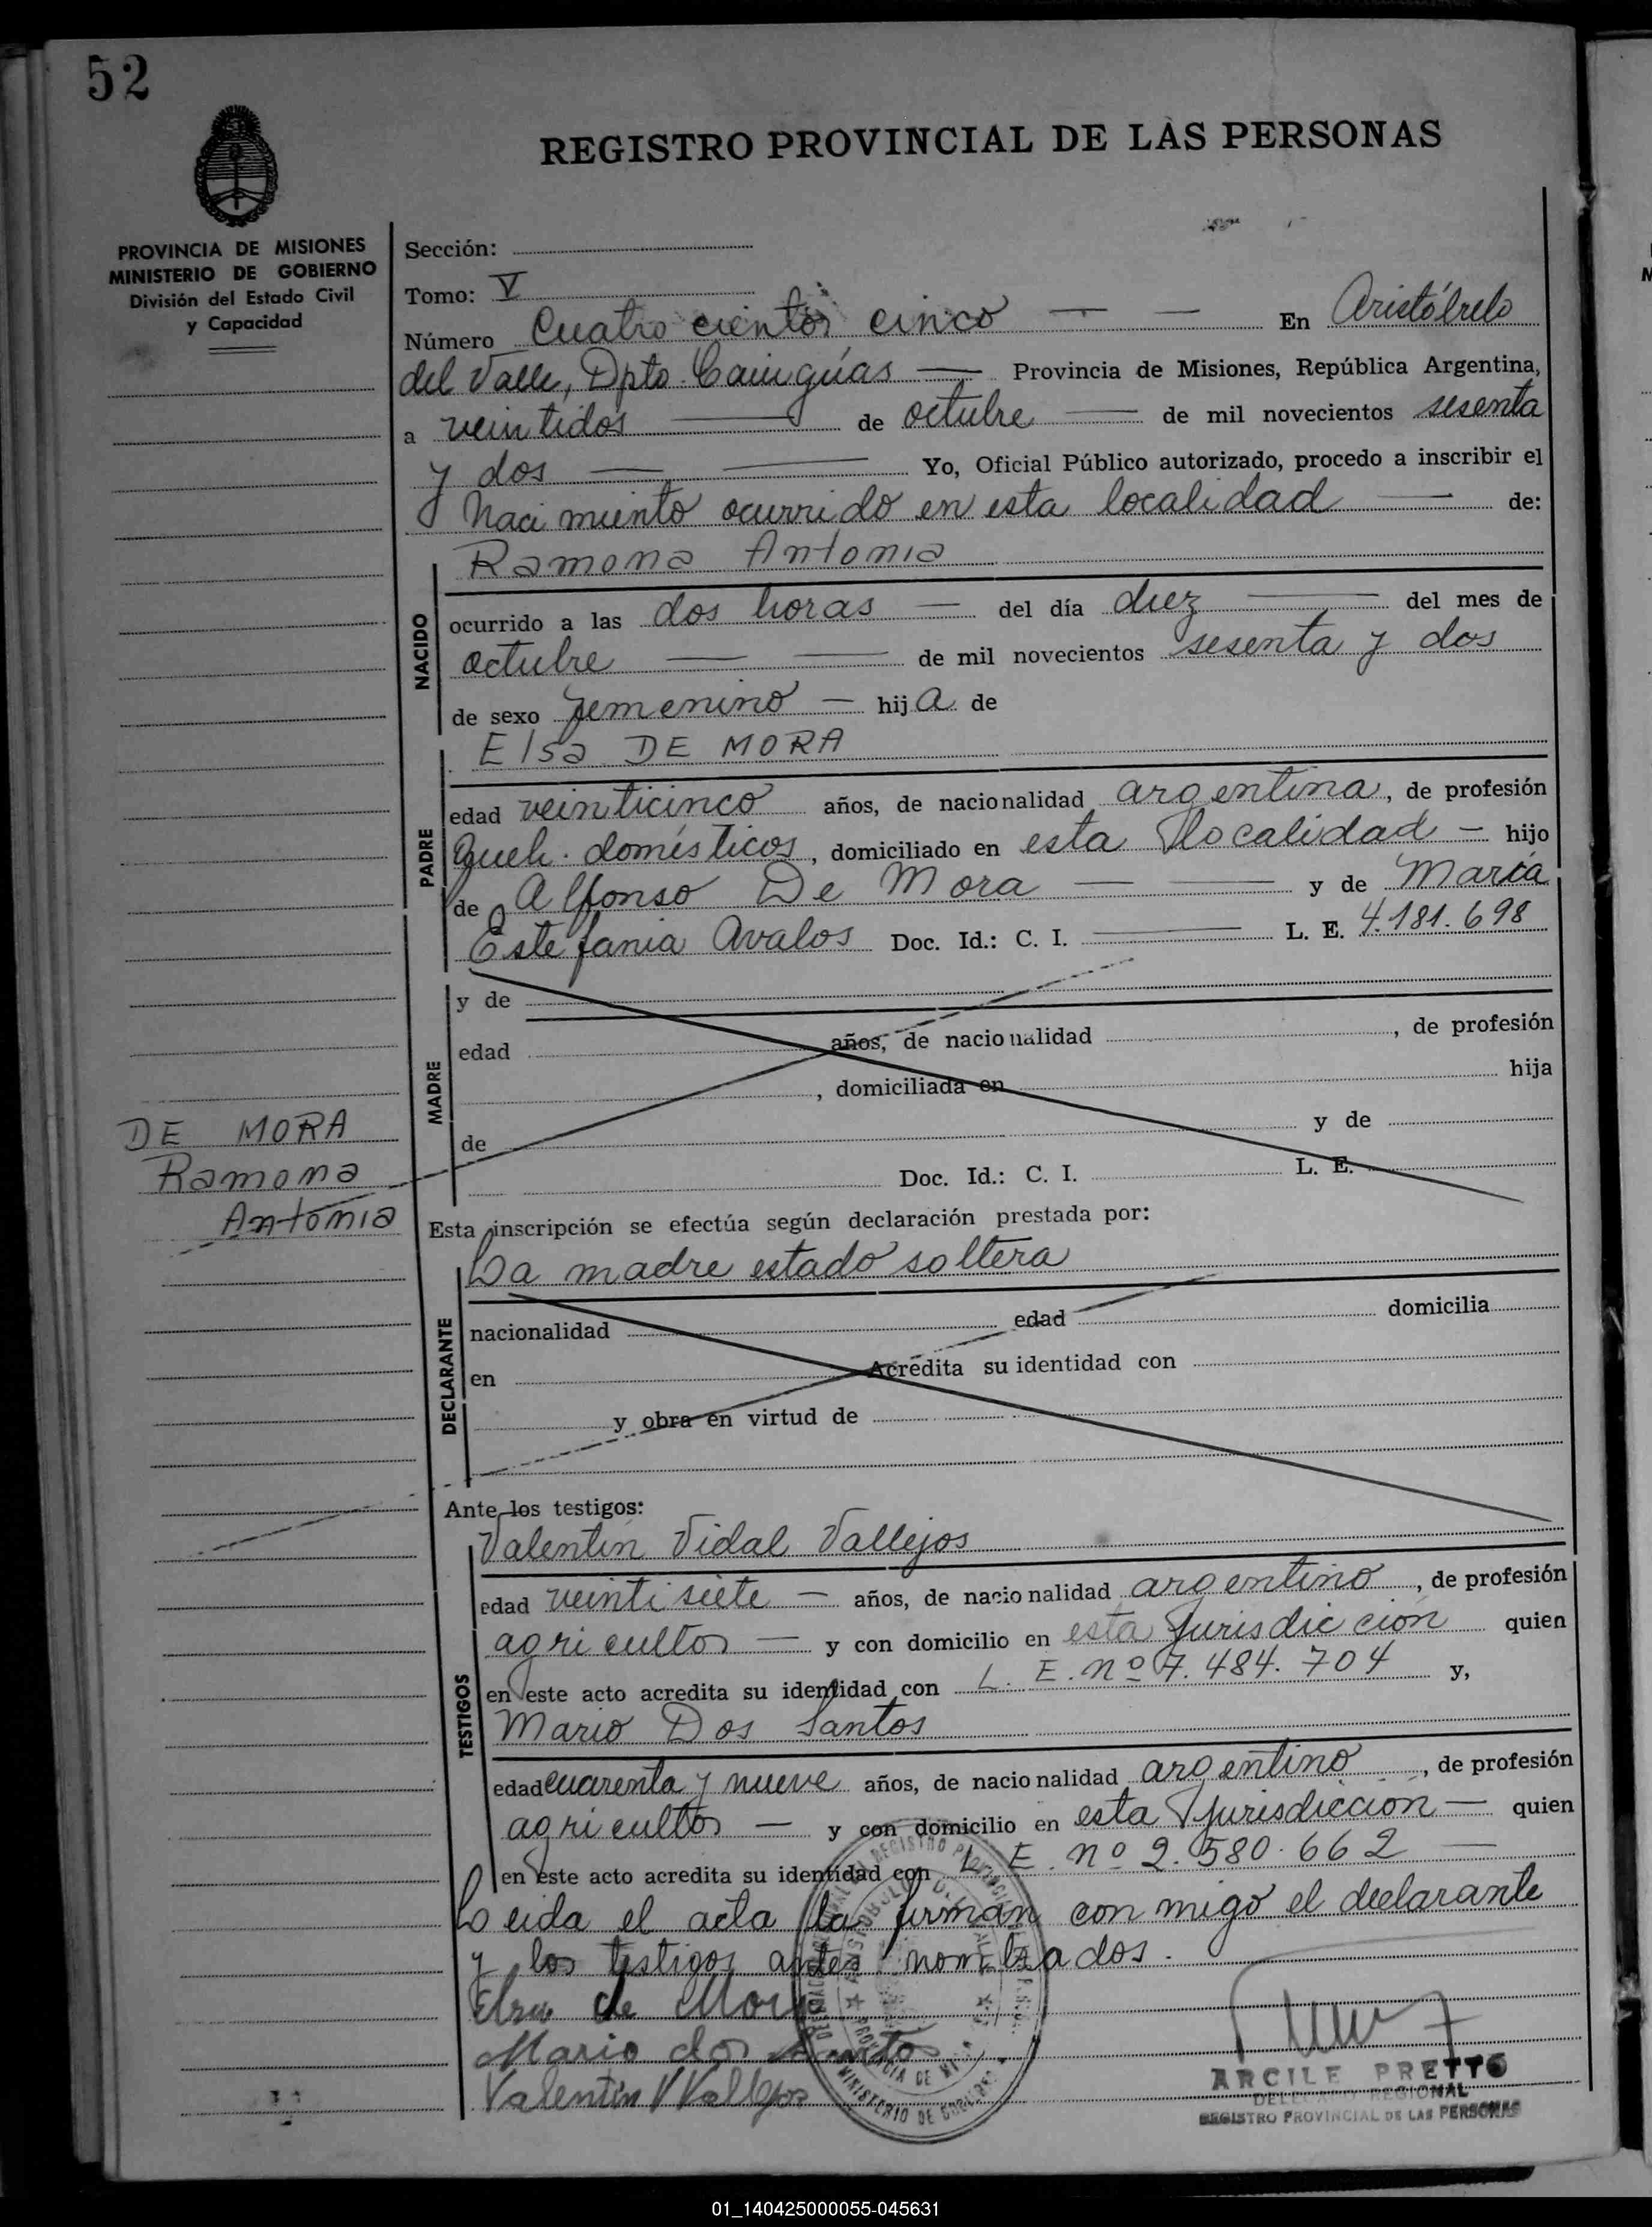 52
REGISTRO PROVINCIAL DE LAS PERSONAS
PROVINCIA DE MISIONES
MINISTERIO DE GOBIERNO
División del Estado Civil
y Capacidad
Sección:
Tomo: V
Número Cuatro cientos cinco — — En Aristóbulo
del Valle, Dpto. Cainguás — Provincia de Misiones, República Argentina,
a veintidos — de octubre — de mil novecientos sesenta
y dos — — Yo, Oficial Público autorizado, procedo a inscribir el
Naci miento ocurrido en esta localidad — de:
Ramona Antonia
NACIDO
ocurrido a las dos horas — del día diez — del mes de
octubre — — de mil novecientos sesenta y dos
de sexo femenino — hija de
Elsa DE MORA
PADRE
edad veinticinco años, de nacionalidad argentina, de profesión
Queh. domésticos, domiciliado en esta localidad — hijo
de Alfonso De Mora — — y de María
Estefania Avalos Doc. Id.: C. I. — L. E. 4.181.698
MADRE
y de
edad años, de nacionalidad , de profesión
, domiciliada en hija
de y de
Doc. Id.: C. I. L. E.
DE MORA
Ramona
Antonia
Esta inscripción se efectúa según declaración prestada por:
La madre estado soltera
DECLARANTE
nacionalidad edad domicilia
en Acredita su identidad con
y obra en virtud de
Ante los testigos:
Valentín Vidal Vallejos
TESTIGOS
edad veinti siete — años, de nacionalidad argentino, de profesión
agricultor — y con domicilio en esta Jurisdicción quien
en este acto acredita su identidad con L. E. nº 7.484.704 y,
Mario Dos Santos
edad cuarenta y nueve años, de nacionalidad argentino, de profesión
agricultor — y con domicilio en esta Jurisdicción — quien
en este acto acredita su identidad con L. E. nº 2.580.662 —
Leida el acta la firman con migo el declarante
y los testigos antes nombrados.
Elsa de Mora
Mario dos Santos
Valentín V Vallejos
ARCILE PRETTO
DELEGADO REGIONAL
REGISTRO PROVINCIAL DE LAS PERSONAS
MINISTERIO DE GOBIERNO
01_140425000055-045631